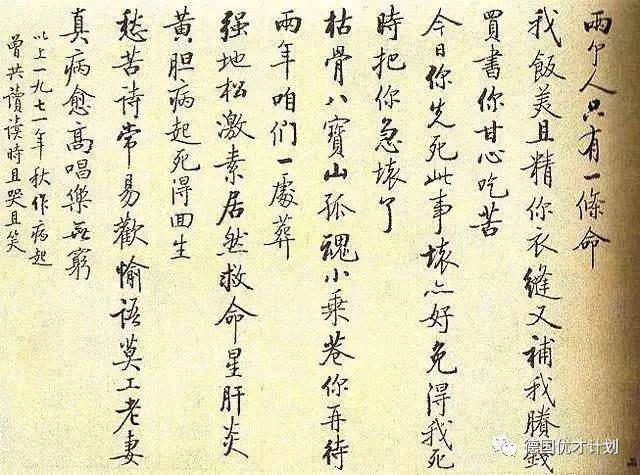 兩个人只有一條命
我飯美且精你衣縫又補我賸錢
買書你甘心吃苦
今日你先死此事壞亦好免得我死
時把你急壞了
枯骨八寶山孤魂小乘巷你再待
兩年咱们一處葬
强地松激素居然救命星肝炎
黄胆病起死得回生
愁苦诗常易歡愉语莫工老妻
真病愈高唱樂无窮
以上一九七一年秋作病起
曾共讀讀時且哭且笑
德国优才计划